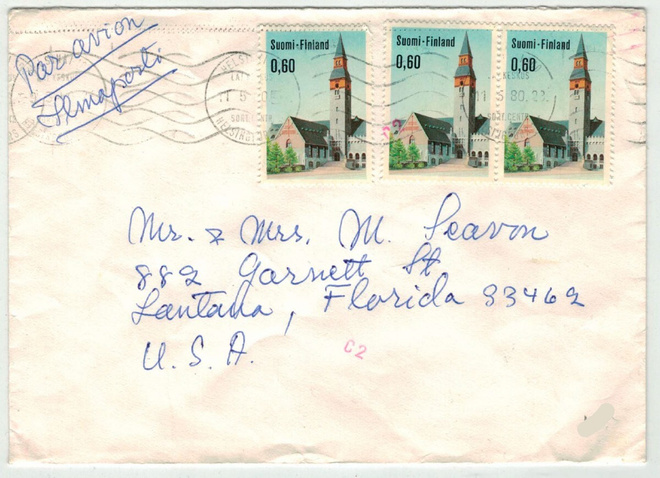 Par avion
Ilmaposti
Suomi-Finland
0,60
Suomi-Finland
0,60
Suomi-Finland
0,60
Mr. & Mrs. M. Seavon
882 Garnett St
Lantana, Florida 33462
U.S.A.
C2